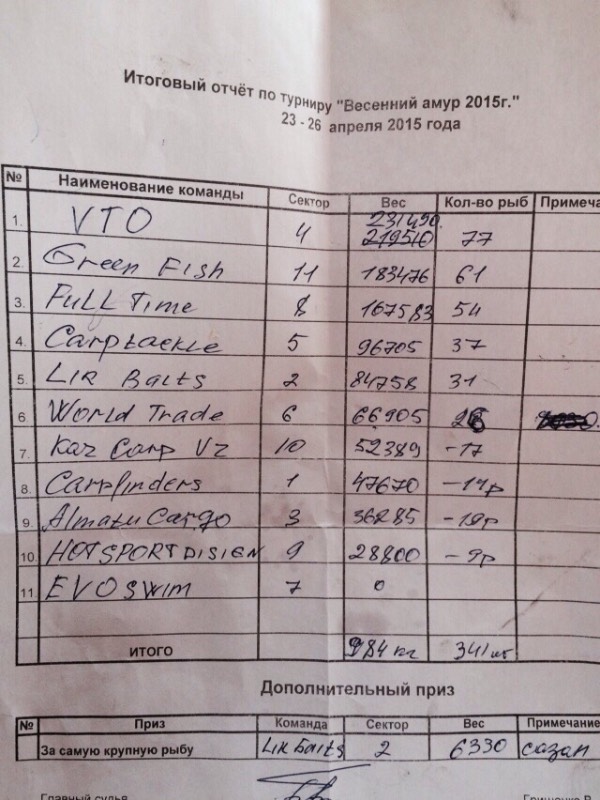 Итоговый отчёт по турниру "Весенний амур 2015г."
23 - 26 апреля 2015 года
№ Наименование команды Сектор Вес Кол-во рыб Примеча
1. VTO 4 231490 219510 77
2. Green Fish 11 183476 61
3. FULL Time 8 167583 54
4. Carptackle 5 96705 37
5. LIK Baits 2 84758 31
6. World Trade 6 66905 26
7. Kaz Carp Vz 10 52389 -17
8. Carpfinders 1 47670
9 Almatu Cargo 3 36285
10. HOTSPORTDISIGN 9 28800 - 9р
11. EVOSWIM 7 0
ИТОГО 984 кг 341 шт
Дополнительный приз
№ Приз Команда Сектор Вес Примечание
За самую крупную рыбу LIK Baits 2 6330 сазан
Главный судья Грищенко В